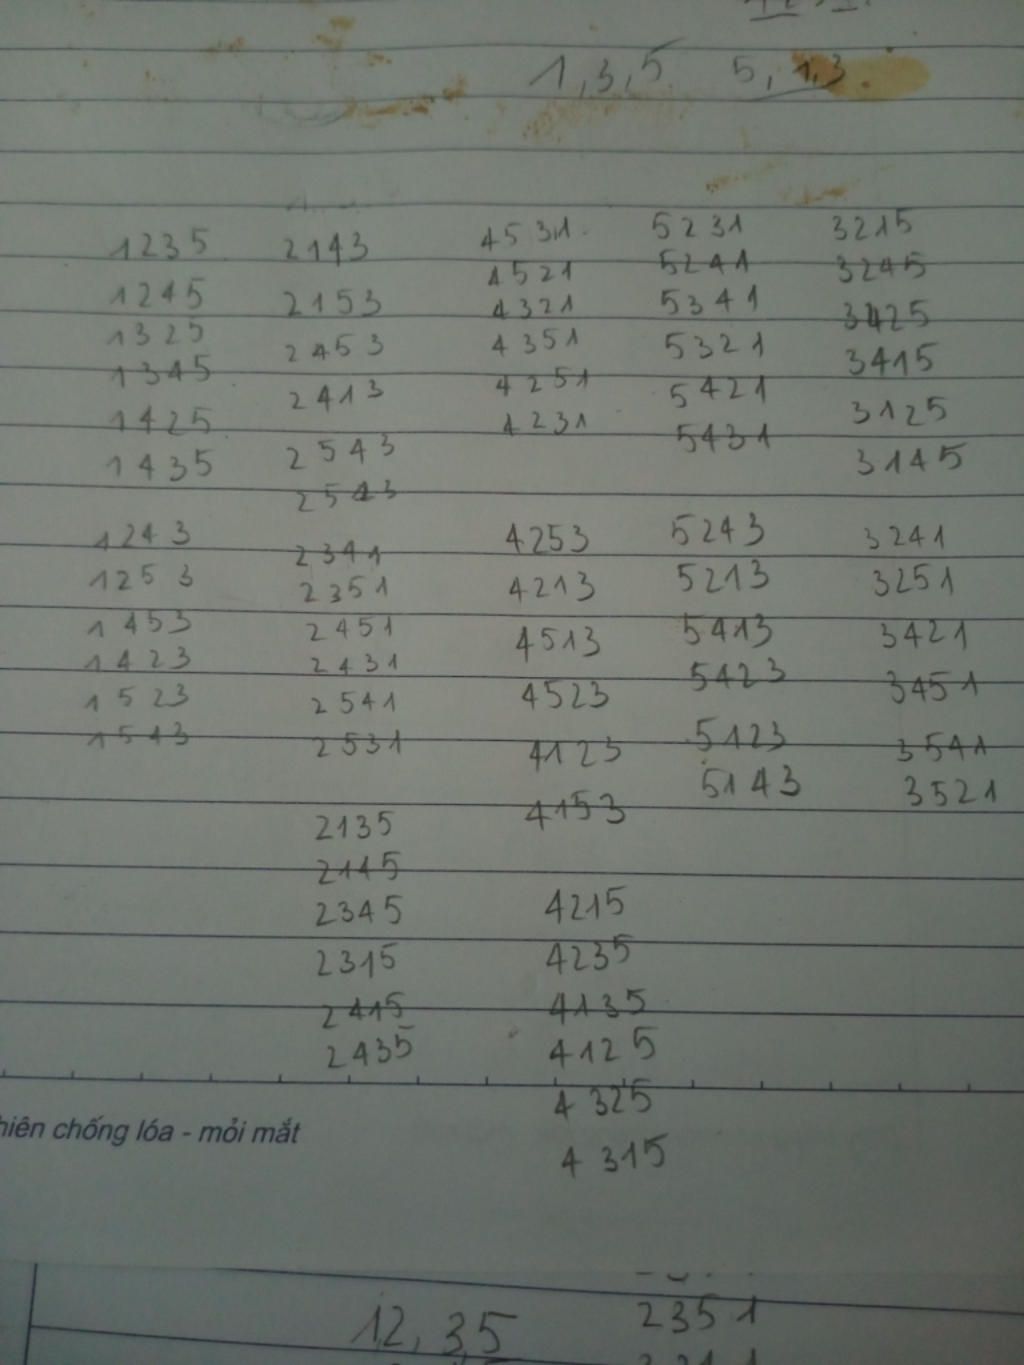 1,3,5 5,1,3
1235 2143 4531 5231 3215
1245 2153 4521 5241 3245
1325 2453 4321 5341 3425
1345 2413 4351 5321 3415
1425 2543 4251 5421 3125
1435 2513 4231 5431 3145
1243 2341 4253 5243 3241
1253 2351 4213 5213 3251
1453 2451 4513 5413 3421
1423 2431 4523 5423 3451
1523 2541 4123 5123 3541
1543 2531 4153 5143 3521
2135 4215
2145 4235
2345 4135
2315 4125
2415 4325
2435 4315
hiên chống lóa - mỏi mắt
12, 3,5 2351